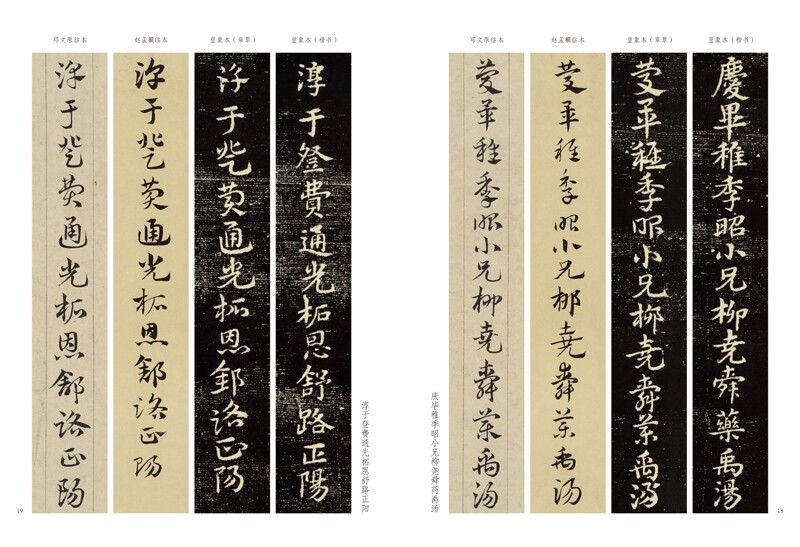 皇象本（楷书）
慶畢稚季昭小兄柳尭舜藥禹湯
皇象本（章草）
慶畢稚季昭小兄柳尭舜藥禹湯
赵孟頫临本
慶畢稚季昭小兄柳尭舜藥禹湯
邓文原临本
慶畢稚季昭小兄柳尭舜藥禹湯
庆毕稚季昭小兄柳尧舜药禹汤
18
皇象本（楷书）
淳于登費通光柘恩舒路正陽
皇象本（章草）
淳于登費通光柘恩舒路正陽
赵孟頫临本
淳于登費通光柘恩舒路正陽
邓文原临本
淳于登費通光柘恩舒路正陽
淳于登费通光柘恩舒路正阳
19